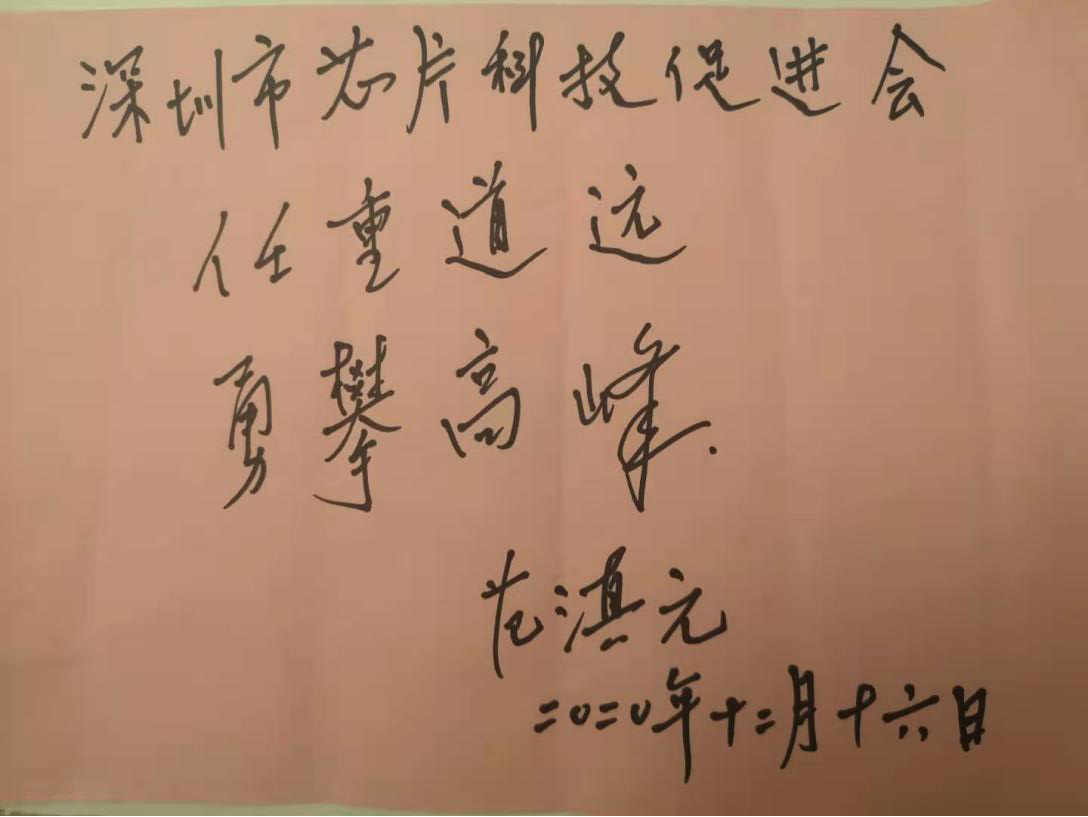 深圳市芯片科技促进会
任重道远
勇攀高峰.
范滇元
二〇二〇年十二月十六日